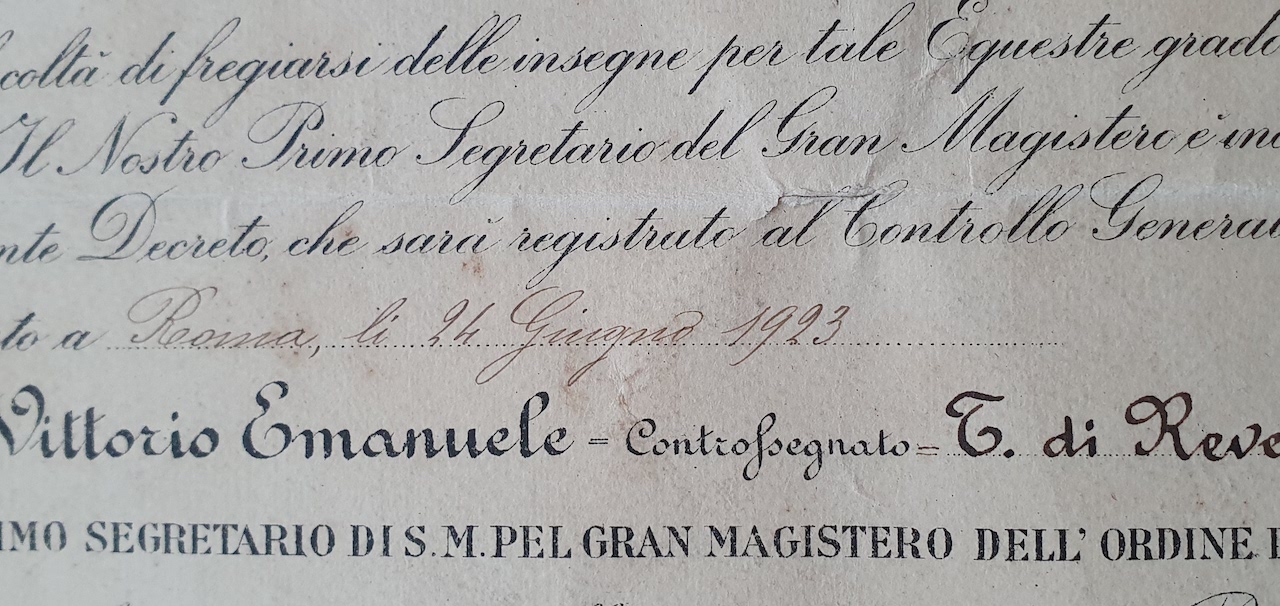 coltà di fregiarsi delle insegne per tale Equestre grado
Il Nostro Primo Segretario del Gran Magistero è inc
nte Decreto, che sarà registrato al Controllo General
to a Roma, li 24 Giugno 1923
Vittorio Emanuele = Controssegnato = T. di Reve
IMO SEGRETARIO DI S. M. PEL GRAN MAGISTERO DELL' ORDINE